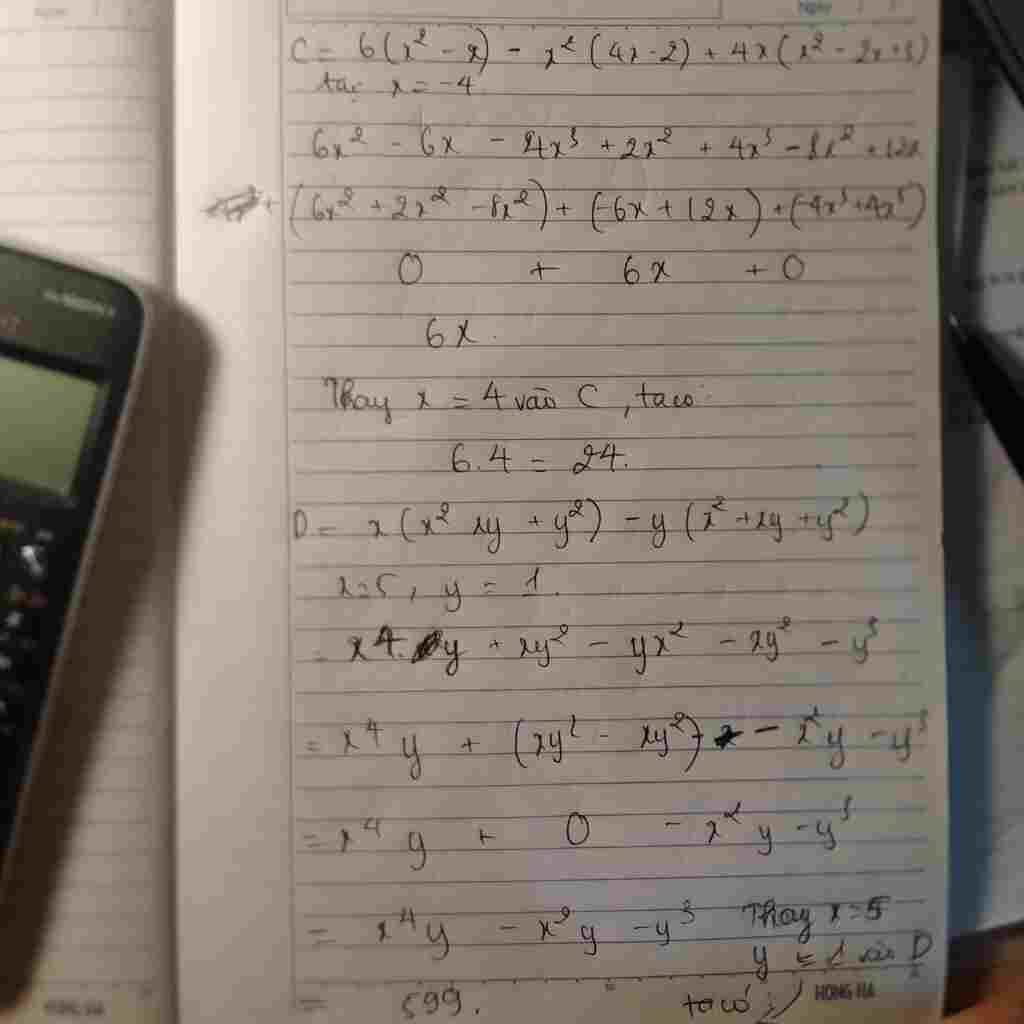 Ngày
C = 6(x² - x) - x²(4x - 2) + 4x(x² - 2x + 3)
tại x = -4
6x² - 6x - 4x³ + 2x² + 4x³ - 8x² + 12x
+ (6x² + 2x² - 8x²) + (-6x + 12x) + (-4x³ + 4x³)
0 + 6x + 0
6x.
Thay x = 4 vào C, ta có
6.4 = 24.
D = x(x² xy + y²) - y(x² + xy + y²)
x = 5, y = 1.
= x4. y + xy² - yx² - xy² - y³
= x⁴y + (xy² - xy²) - x²y - y³
= x⁴y + 0 - x²y - y³
= x⁴y - x²y - y³ Thay x = 5
y = 1 vào D
= 599. ta có:
HONG HA
HONG HA